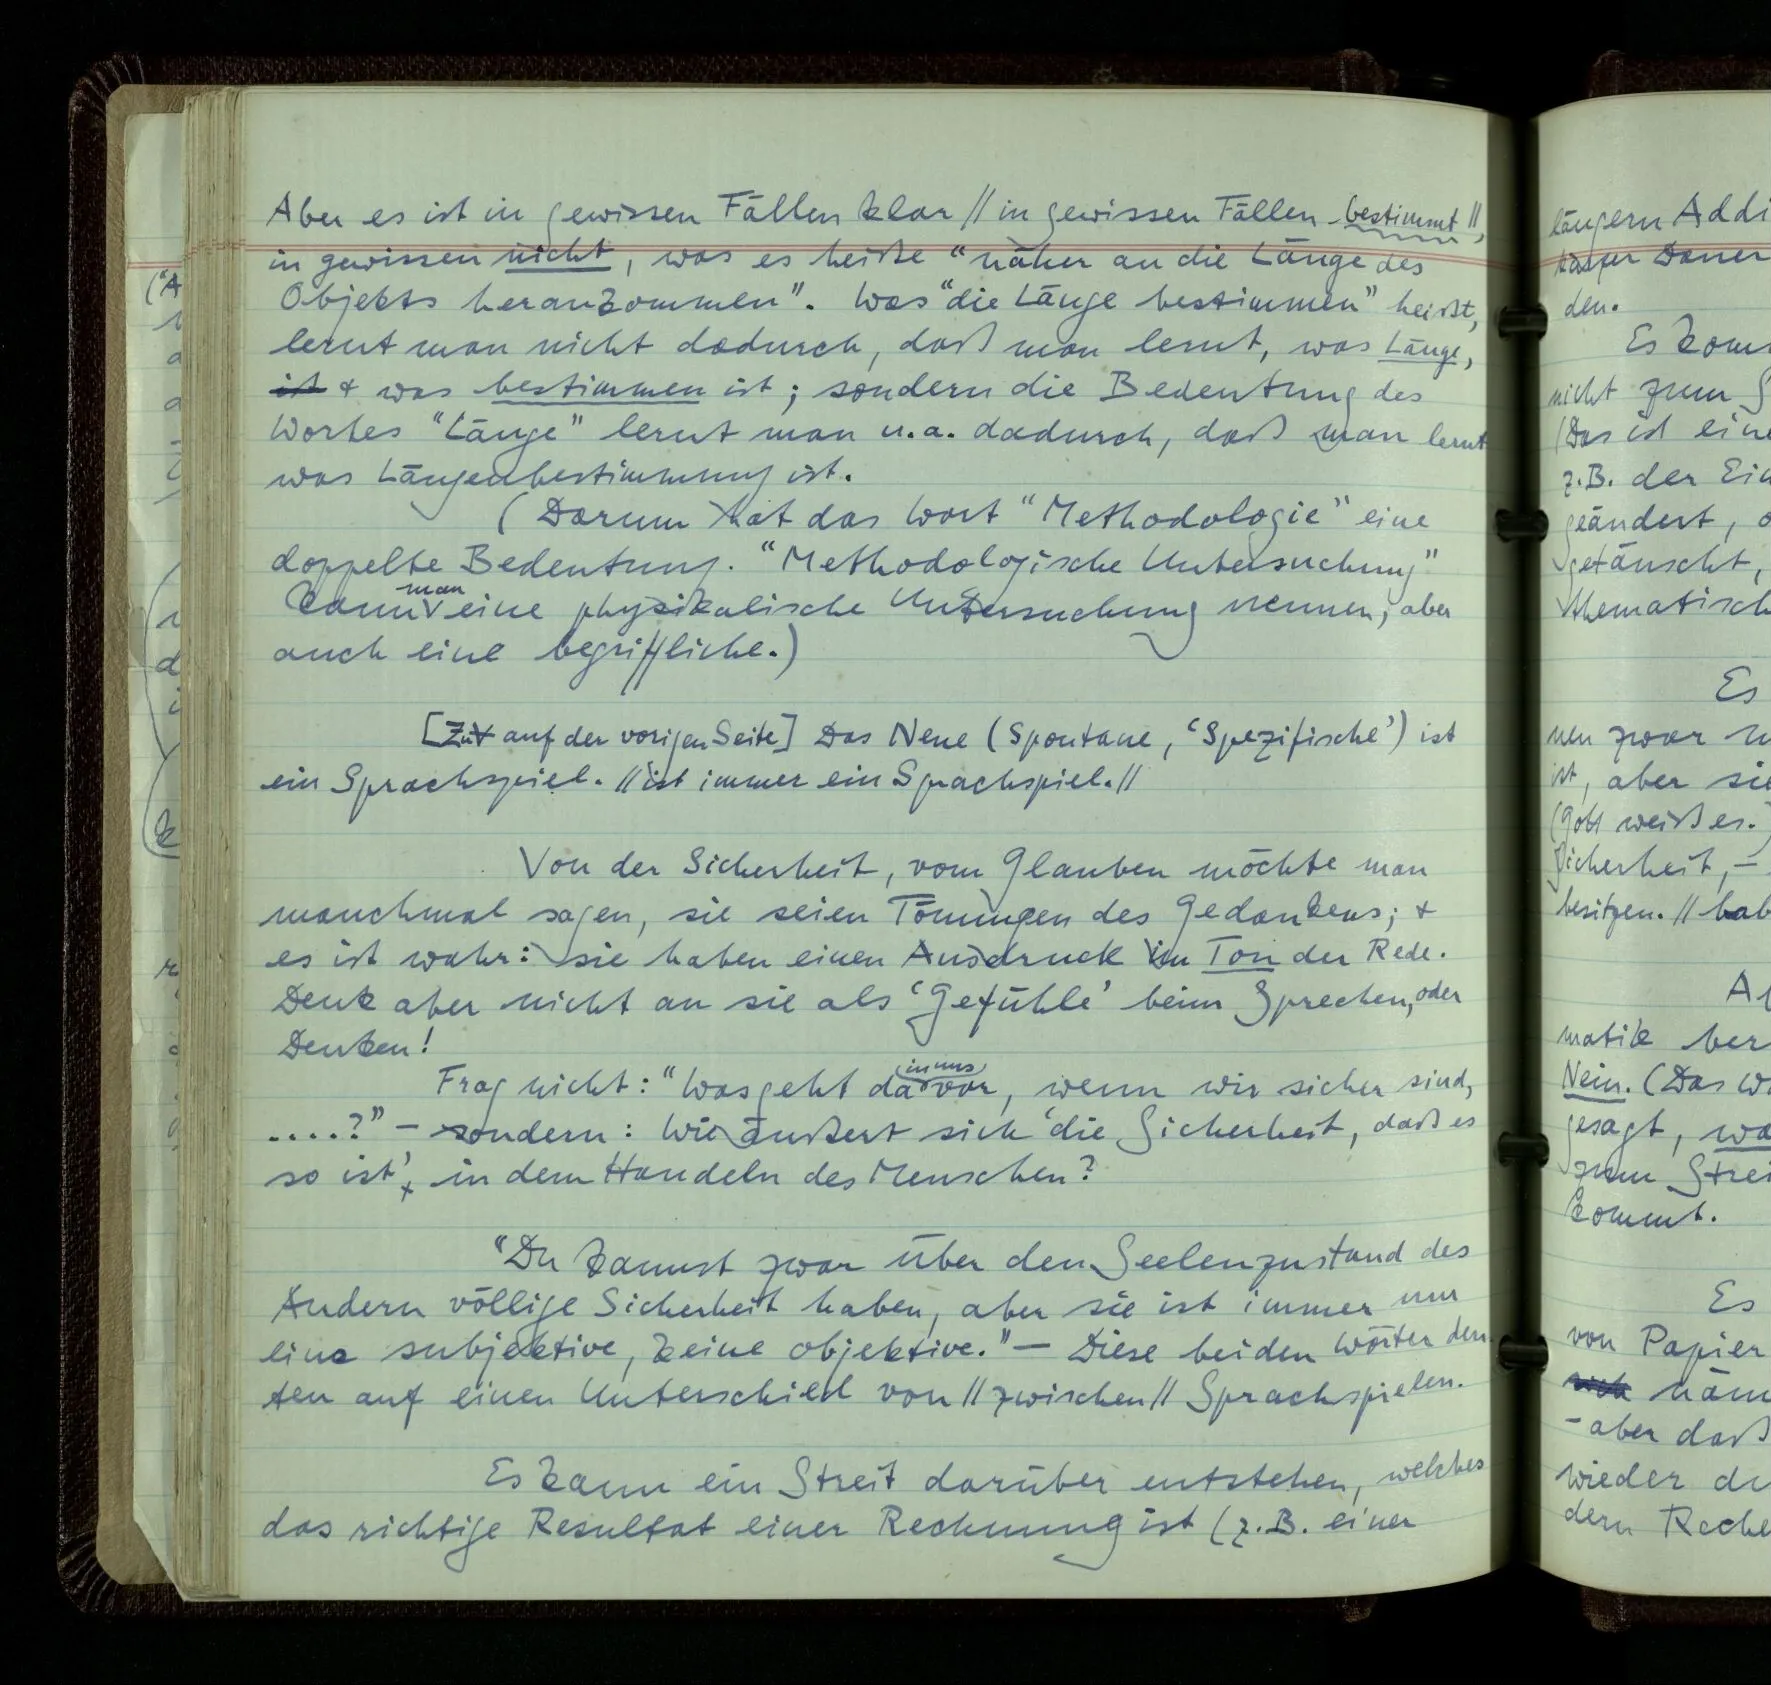 Aber es ist in gewissen Fällen klar // in gewissen Fällen bestimmt //,
in gewissen nicht, was es heiße “näher an die Länge des
Objekts herankommen”. Was “die Länge bestimmen” heißt,
lernt man nicht dadurch, daß man lernt, was Länge,
ist & was bestimmen ist; sondern die Bedeutung des
Wortes “Länge” lernt man u.a. dadurch, daß man lernt
was Längenbestimmung ist.
(Darum hat das Wort “Methodologie” eine
doppelte Bedeutung. “Methodologische Untersuchung”
kann man eine physikalische Untersuchung nennen, aber
auch eine begriffliche.)
[Zu auf der vorigen Seite] Das Neue (Spontane, ‘Spezifische’) ist
ein Sprachspiel. // ist immer ein Sprachspiel. //
Von der Sicherheit, vom Glauben möchte man
manchmal sagen, sie seien Tönungen des Gedankens; &
es ist wahr: sie haben einen Ausdruck im Ton der Rede.
Denk aber nicht an sie als ‘Gefühle’ beim Sprechen, oder
Denken!
Frag nicht: “Was geht da in uns vor, wenn wir sicher sind,
....?” – sondern: Wie äußert sich ‘die Sicherheit, daß es
so ist’, in dem Handeln des Menschen?
“Du kannst zwar über den Seelenzustand des
Andern völlige Sicherheit haben, aber sie ist immer nur
eine subjektive, keine objektive.” – Diese beiden Wörter deu-
ten auf einen Unterschied von // zwischen // Sprachspielen.
Es kann ein Streit darüber entstehen, welches
das richtige Resultat einer Rechnung ist (z.B. einer
längern Addi
Dauer
den.
Es kom
nicht zum S
(Das ist eine
z.B. der Ein
geändert, o
getäuscht,
thematisch
Es
nen zwar n
ist, aber sie
(Gott weiß es.)
Sicherheit, –
besitzen. // hab
matik ber
Nein. (Das W
gesagt, wa
zum Strei
kommt.
Es
von Papier
näm
– aber daß
wieder du
dern Reche